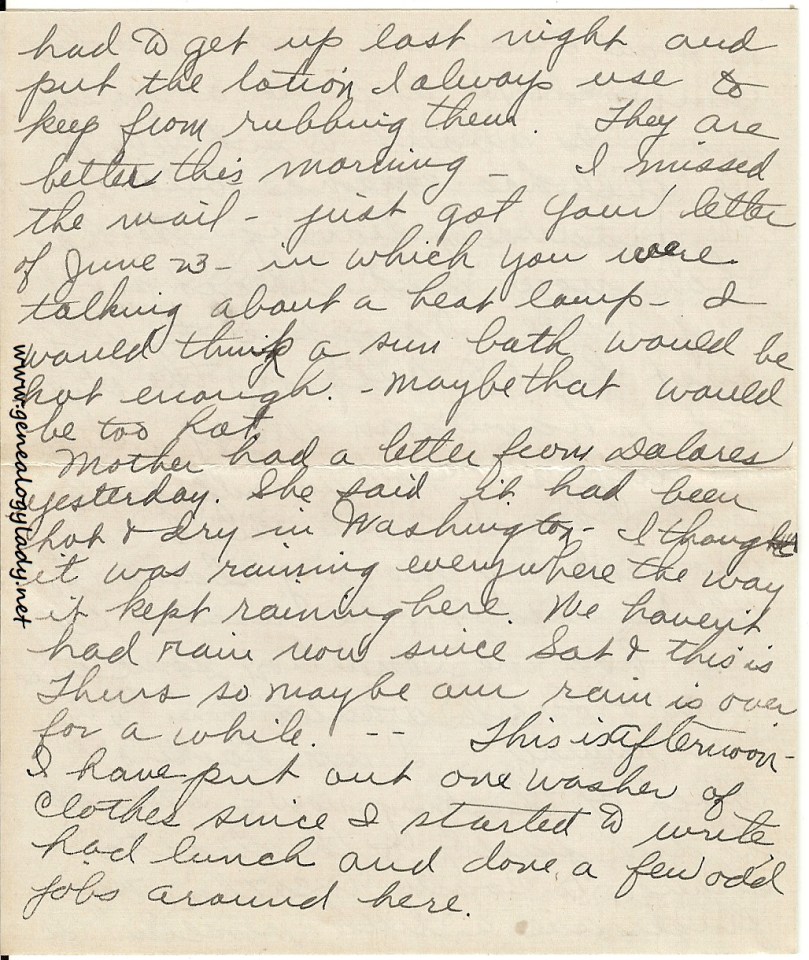 had to get up last night and
put the lotion I always use to
keep from rubbing them. They are
better this morning - I missed
the mail - just got your letter
of June 23 - in which you were
talking about a heat lamp - I
would think a sun bath would be
hot enough. - Maybe that would
be too hot
Mother had a letter from Dalores
yesterday. She said it had been
hot & dry in Washington - I thought
it was raining everywhere the way
it kept raining here. We haven't
had rain now since Sat & this is
Thurs so maybe our rain is over
for a while. -- This is afternoon -
I have put out one washer of
clothes since I started to write,
had lunch and done a few odd
jobs around here.
www.genealogylady.net